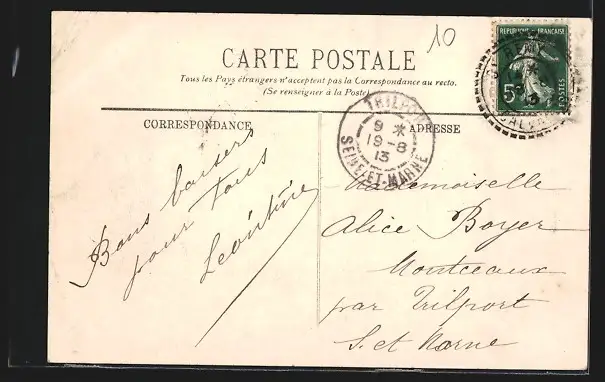 10
REPUBLIQUE FRANÇAISE
5c
POSTES
CARTE POSTALE
Tous les Pays étrangers n'acceptent pas la Correspondance au recto.
(Se renseigner à la Poste)
CORRESPONDANCE
ADRESSE
TRILPORT
9 *
19-8
13
SEINE-ET-MARNE
Bons baisers
pour tous
Léontine
Mademoiselle
Alice Boyer
Montceaux
par Trilport
S. et Marne